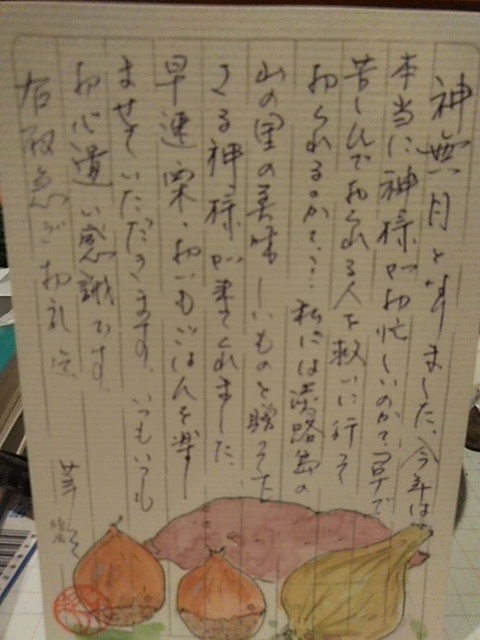 神無月となりました、今年は
本当に神様がお忙しいのか?
苦しんでおられる人を救いに行って
おられるのか?… 私には淡路島の
山の里の美味しいものを贈って
下さる神様が来てくれました。
早速栗・おいもごはんを楽し
ませていただきます。いつもいつも
お心遣い感謝です。
右取急ぎお礼迄